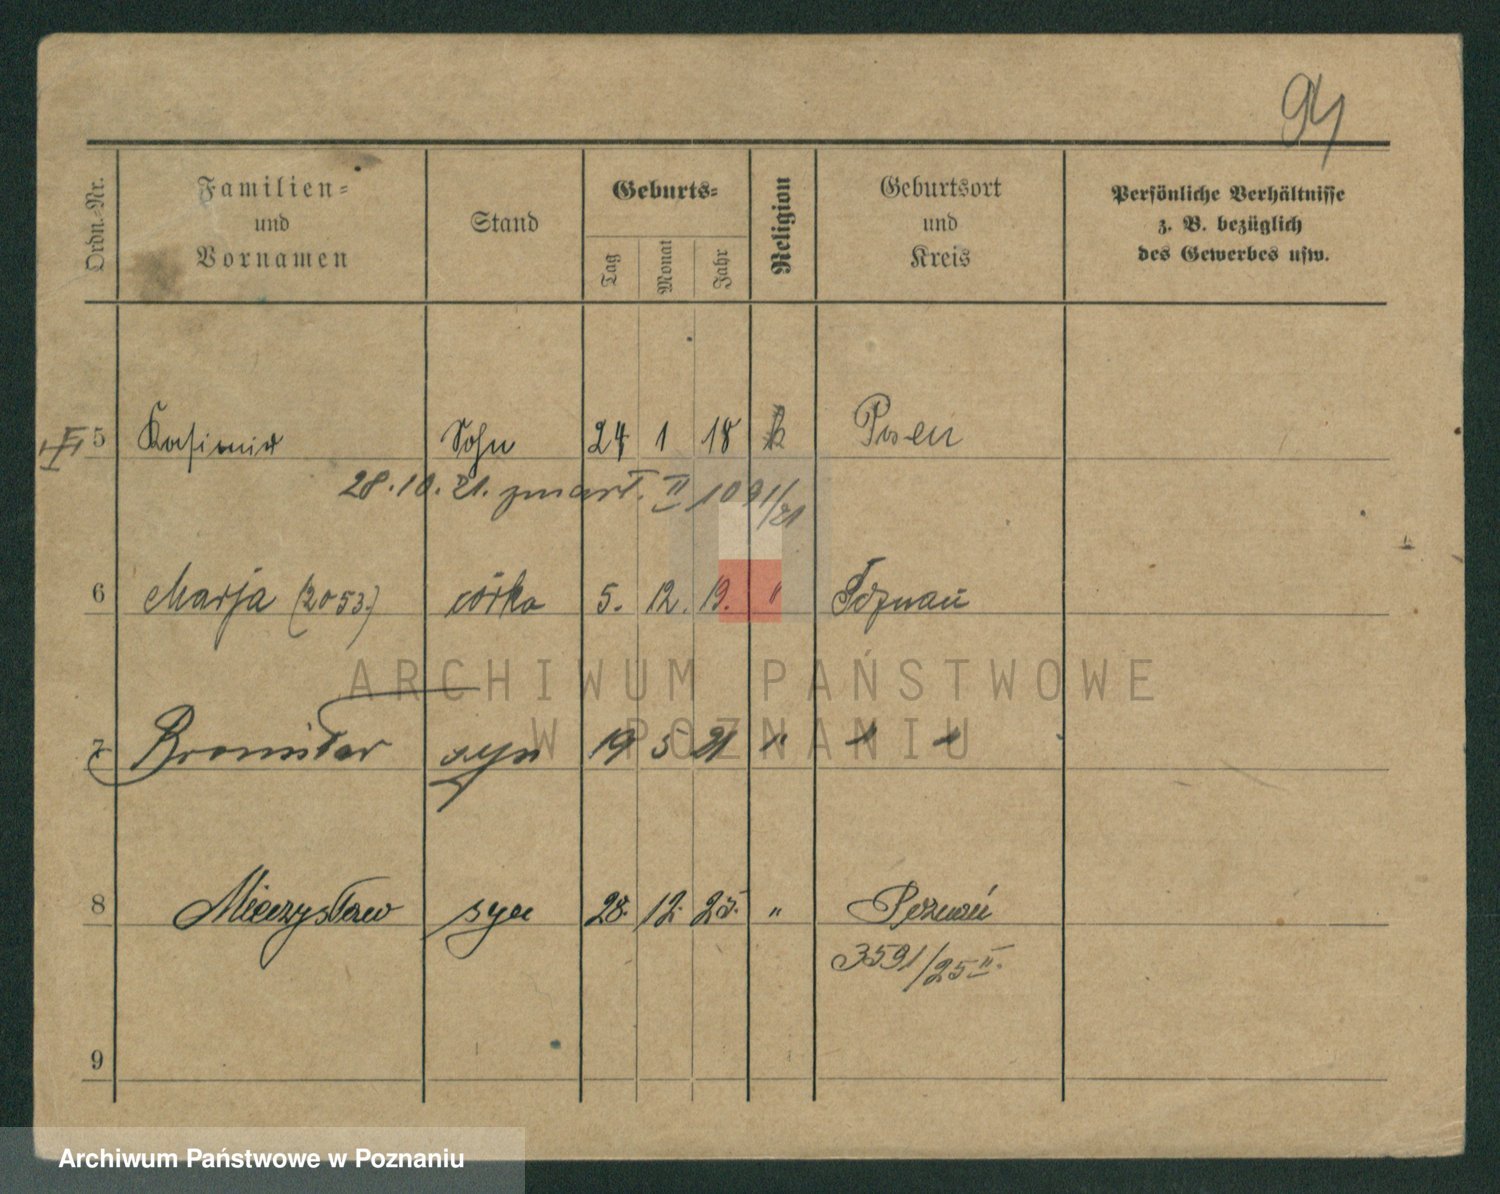 94
Ordn.-Nr. Familien= und Vornamen Stand Geburts= Tag Monat Jahr Religion Geburtsort und Kreis Persönliche Verhältnisse z. B. bezüglich des Gewerbes usw.
5 Kasimir Sohn 24 1 18 k Posen
28.10.21. zmarł. II 1091/21
6 Marja (2053.) córka 5. 12. 19. " Poznań
ARCHIWUM PAŃSTWOWE
W POZNANIU
7 Bronisław syn 19 5 21 " " "
8 Mieczysław syn 28. 12. 25. " Poznań
3591/25 II.
9
Archiwum Państwowe w Poznaniu